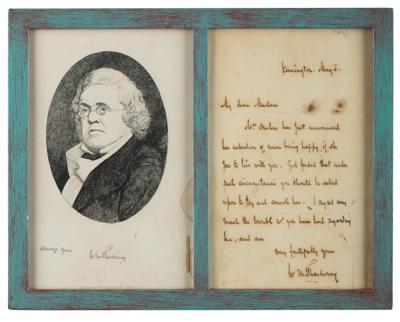 Always yours
W M Thackeray
Kensington. May 5.
My dear Madam
Mrs has just announced
her intention of never being happy if she
goes to live with you. God forbid that under
such circumstances you should be asked
upon to try and console her. I regret very
much the trouble wh you have had regarding
her, and am
very faithfully yours
W M Thackeray